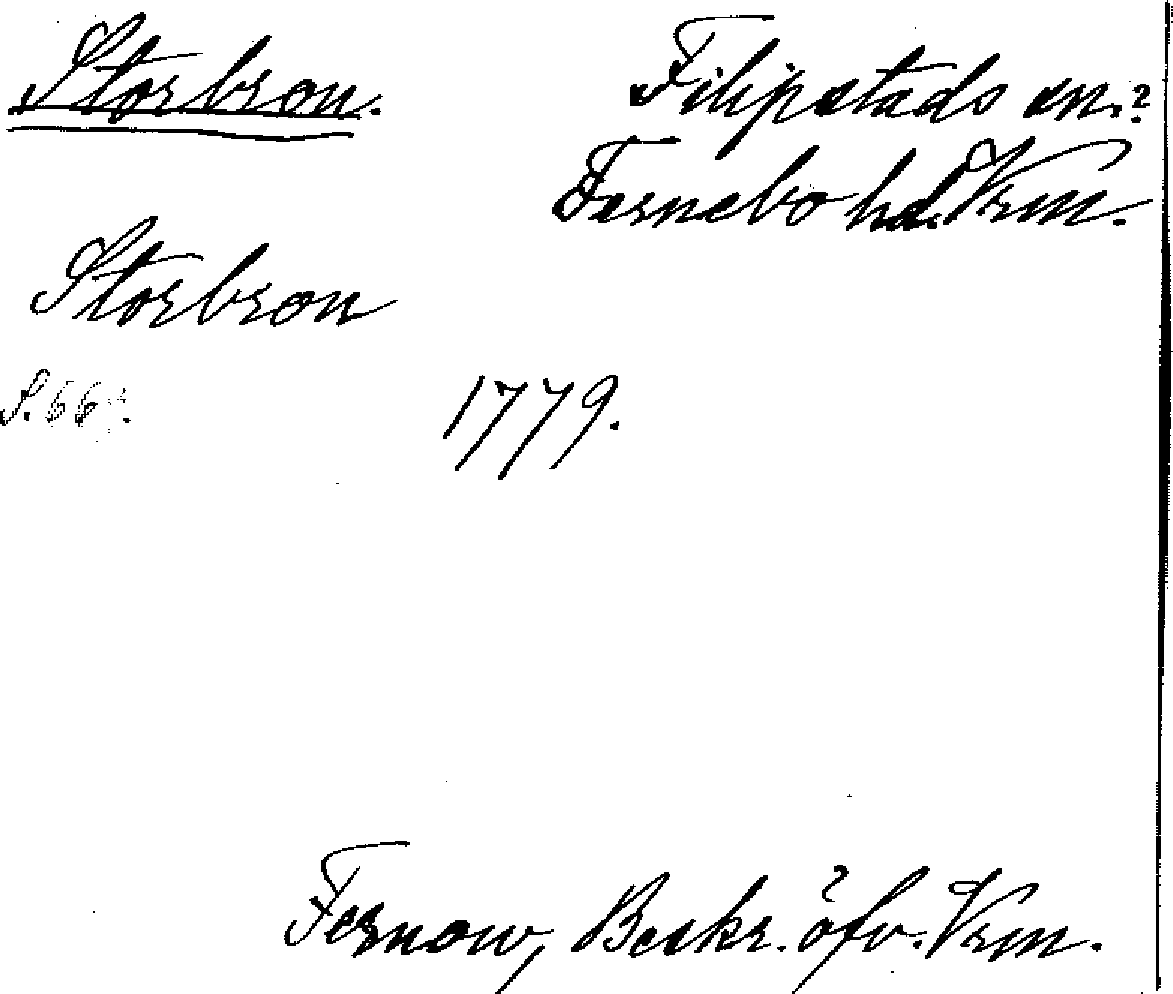 Storbron.
Filipstads sn.?
Fernebo hd. Vrm.
Storbron
S. 66
1779.
Fernow, Beskr. öfv. Vrm.